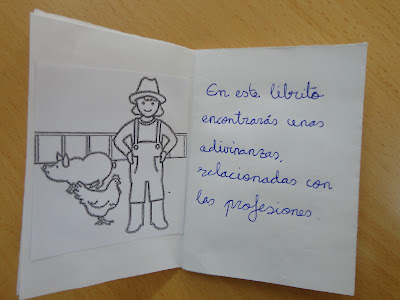 En este librito
encontrarás unas
adivinanzas,
relacionadas con
las profesiones.